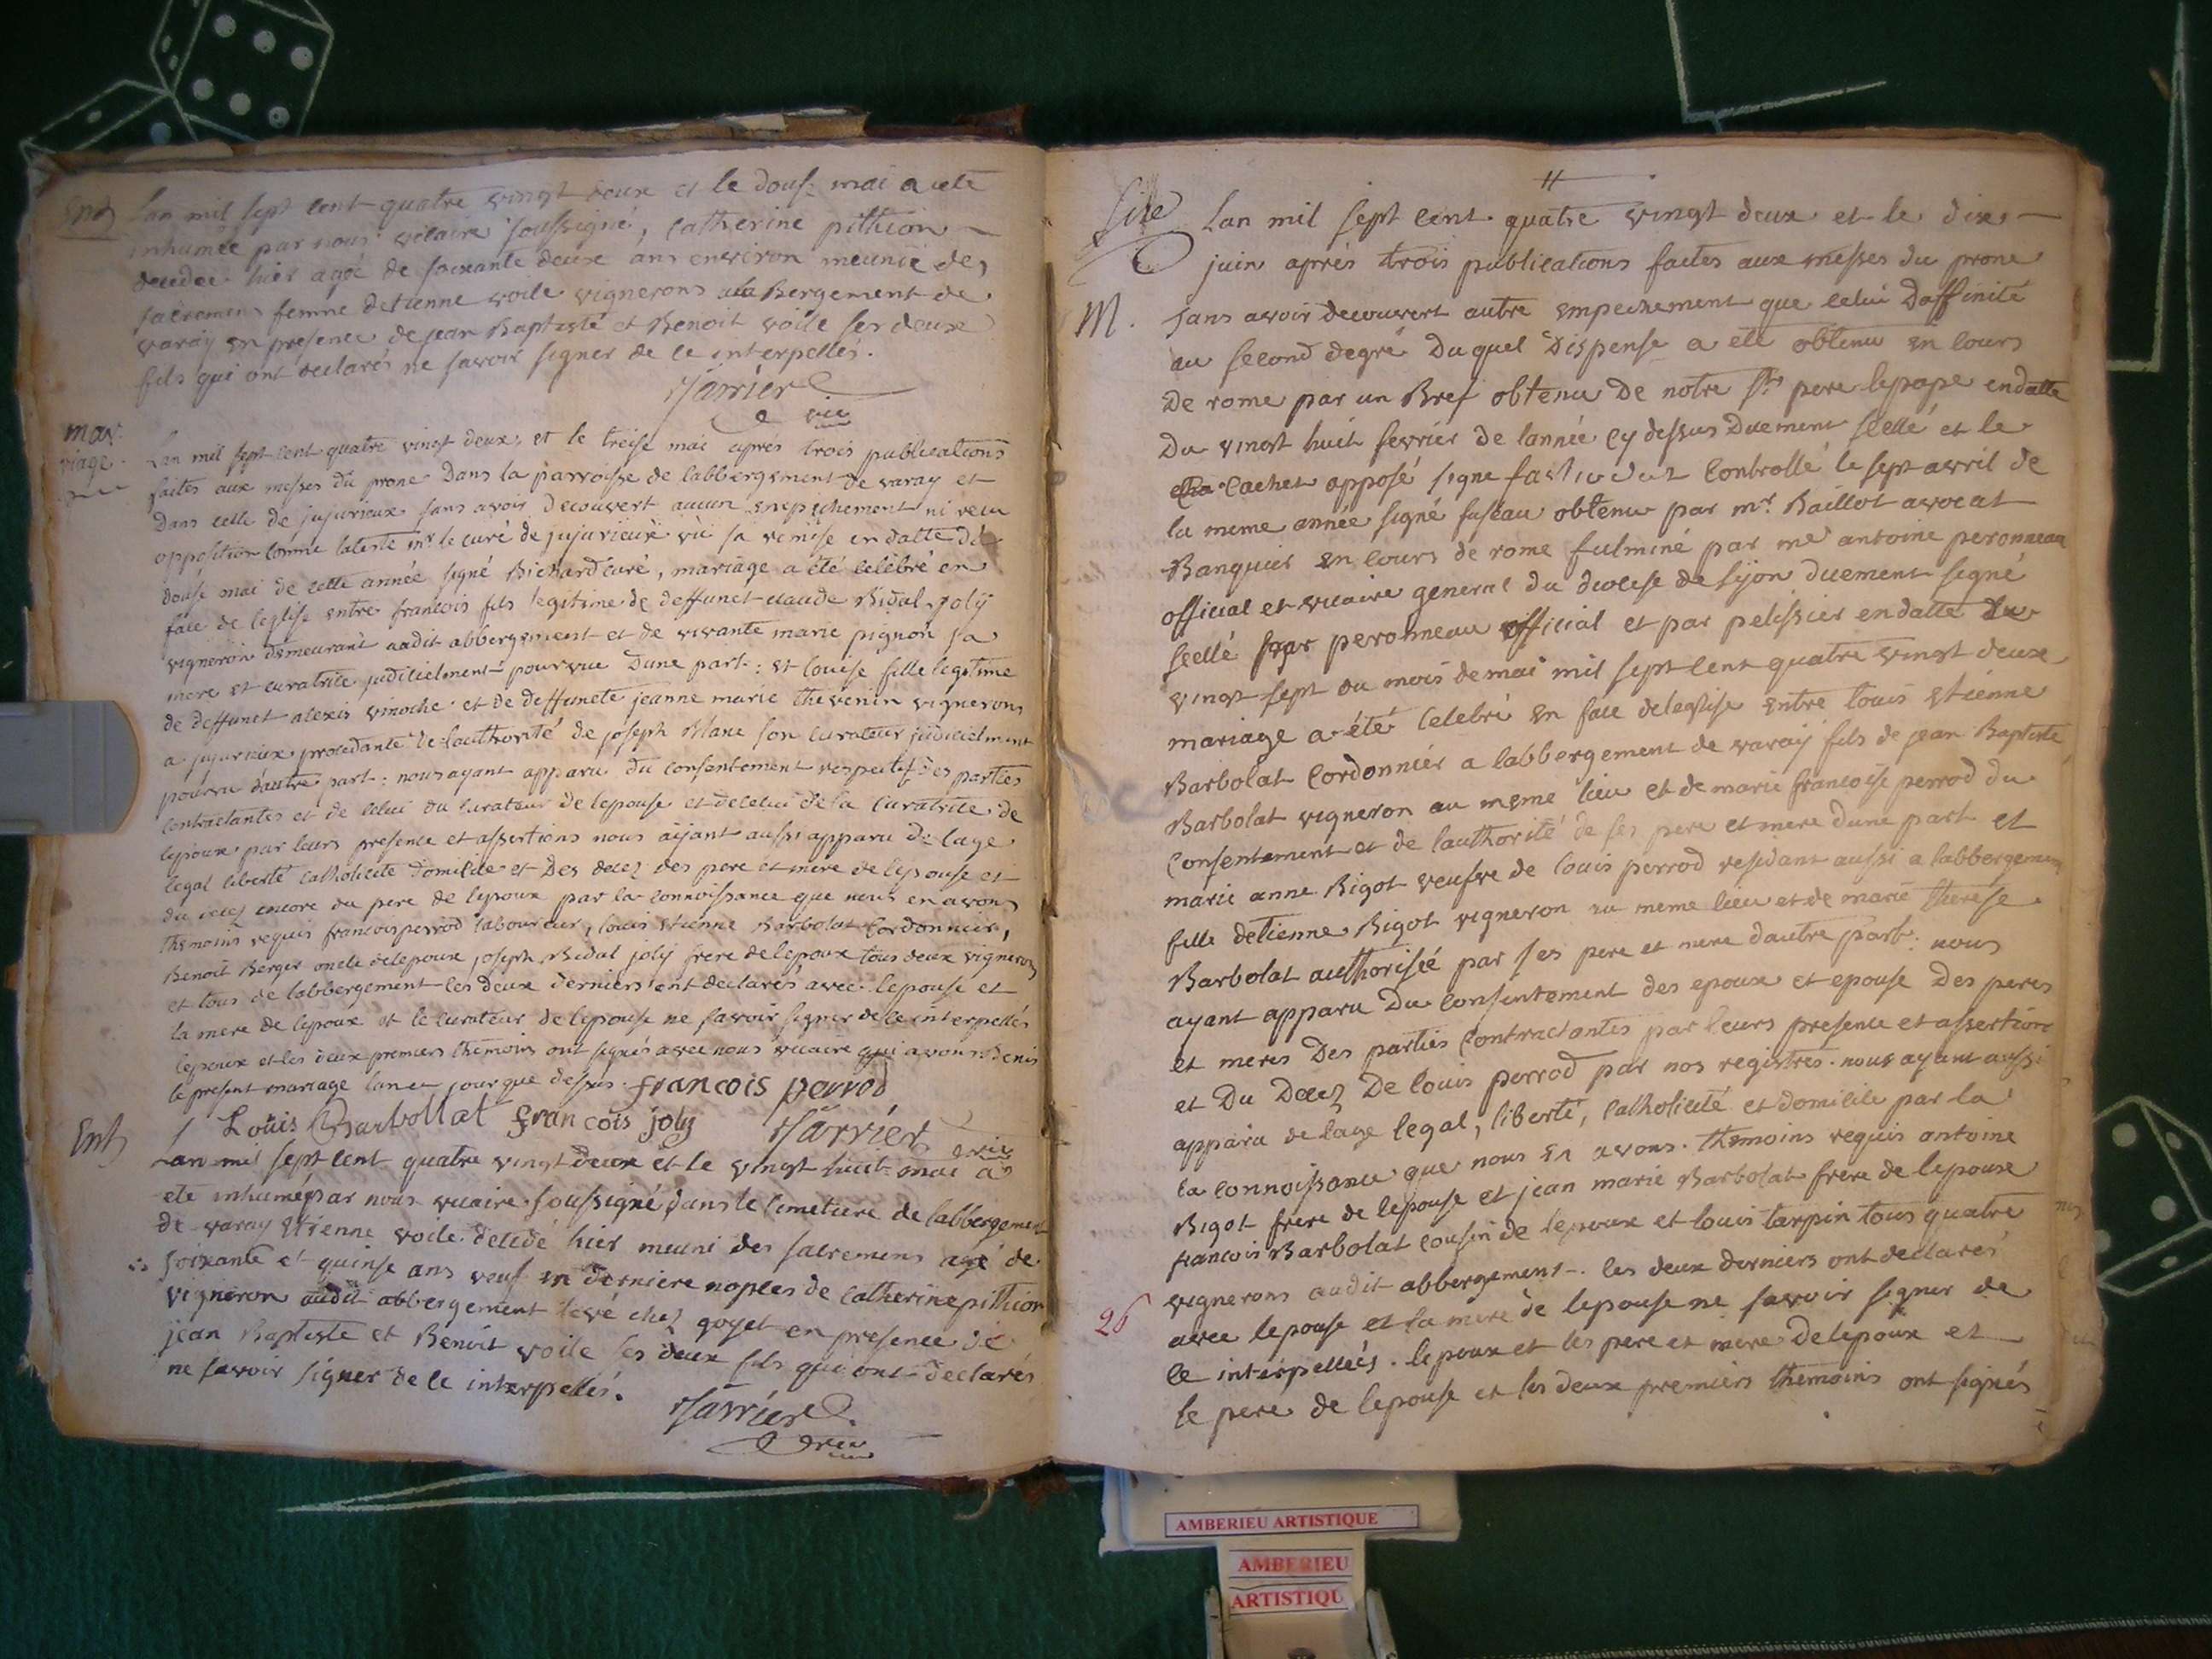 Ent
Lan mil sept cent quatre vingt deux et le douse mai a ete
inhumée par nous vicaire soussigné, catherine pithion
decedee hier agée de soixante deux ans environ meunie des
sacremens femme detienne voile vignerons a la Bergement de
varay en presence de jean Baptiste et Benoit voile ses deux
fils qui ont declarés ne savoir signer de ce interpellés.
vic
mar
riage
Lan mil sept cent quatre vingt deux, et le treise mai apres trois publications
faites aux messes du prone Dans la parroisse de labbergement de varay et
Dans celle de jujurieux sans avoir decouvert aucun empechement ni recu
opposition comme lateste mr. le curé de jujurieux vû sa remise en datte du
douse mai de cette année signé Bichard curé, mariage a été célébré en
face de leglise entre francois fils legitime de deffunct claude Bidal joly
vigneron demeurant audit abbergement et de vivante marie pignon sa
mere et curatrice judicielment pourvue Dune part: et louise fille legitime
de deffunct alexis vinoche et de deffuncte jeanne marie thevenin vignerons
a jujurieux procedante de lauthorité de joseph Blanc son curateur judicielment
pourvu dautre part: nous ayant apparu du consentement respectif des parties
contractantes et de celui du curateur de lepouse et de celui de la curatrice de
lepoux par leurs presence et assertions nous aÿant aussi apparu de lage
legal liberté catholicite domicile et Des decez des pere et mere de lepouse et
du decez encore du pere de lepoux par la connoissance que nous en avons
themoins requis francois perrod laboureur, louis etienne Barbolat cordonnier,
Benoit Berger oncle de lepoux joseph Bidal joly frere de lepoux tous deux vignerons
et tous de labbergement les deux derniers ont declarés avec lepouse et
la mere de lepoux et le curateur de lepouse ne savoir signer de ce interpellés
lepoux et les deux premiers themoins ont signés avec nous vicaire qui avons benis
le present mariage lan et jour que dessus. francois perrod
Louis Barbollat francois joly
vic
Ent
Lan mil sept cent quatre vingt deux et le vingt huit mai a
ete inhumé par nous vicaire soussigné dans le cimetiere de labbergement
de varay Etienne voile decedé hier muni des sacremens agé de
soixante et quinse ans veuf en derniere noples de catherine pithion
vigneron audit abbergement levé chez goyet en presence de
jean Baptiste et Benoit voile ses deux fils qui ont declarés
ne savoir signer de ce interpellés.
vic
11
Lan mil sept cent quatre vingt deux et le dix
juin après trois publications faites aux messes du prone
M. sans avoir decouvert autre empechement que celui Daffinité
au second degré Duquel Dispense a été obtenu en cours
De rome par un Bref obtenu De notre St pere lepape endatte
Du vingt huit fevrier de lannée cy dessus Duement scellé et le
cachet apposé signe controllé le sept avril de
la meme année signé fuseau obtenu par mr. Baillot avocat
Banquier en cours de rome fulminé par me antoine peronneau
official et vicaire general du diocese de lÿon duement signé
scellé par peronneau official et par pelissier endatte du
vingt sept du mois de mai mil sept cent quatre vingt deux
mariage a été celebré en face deleglise entre louis etienne
Barbolat cordonnier a labbergement de varaÿ fils de jean Baptiste
Barbolat vigneron au meme lieu et de marie francoise perrod du
consentement et de lauthorité de ses pere et mere dune part et
marie anne Bigot veufve de louis perrod residant aussi a labbergement
fille detienne Bigot vigneron au meme lieu et de marie therese
Barbolat authorisée par ses pere et mere dautre part: nous
ayant apparu Du consentement des epoux et epouse Des peres
et meres Des parties contractantes par leurs presence et assertions
et Du Decez De louis perrod par nos registres. nous ayant aussi
apparu de lage legal, liberté, catholicité et domicile par la
la connoissance que nous en avons. themoins requis antoine
Bigot frere de lepouse et jean marie Barbolat frere de lepoux
francois Barbolat cousin de lepoux et louis tarpin tous quatre
vignerons audit abbergement. les deux derniers ont declarés
26 avec lepouse et la mere de lepouse ne savoir signer de
ce interpellées. lepoux et les pere et mere De lepoux et
le pere de lepouse et les deux premiers themoins ont signés
AMBERIEU ARTISTIQUE
AMBERIEU
ARTISTIQU